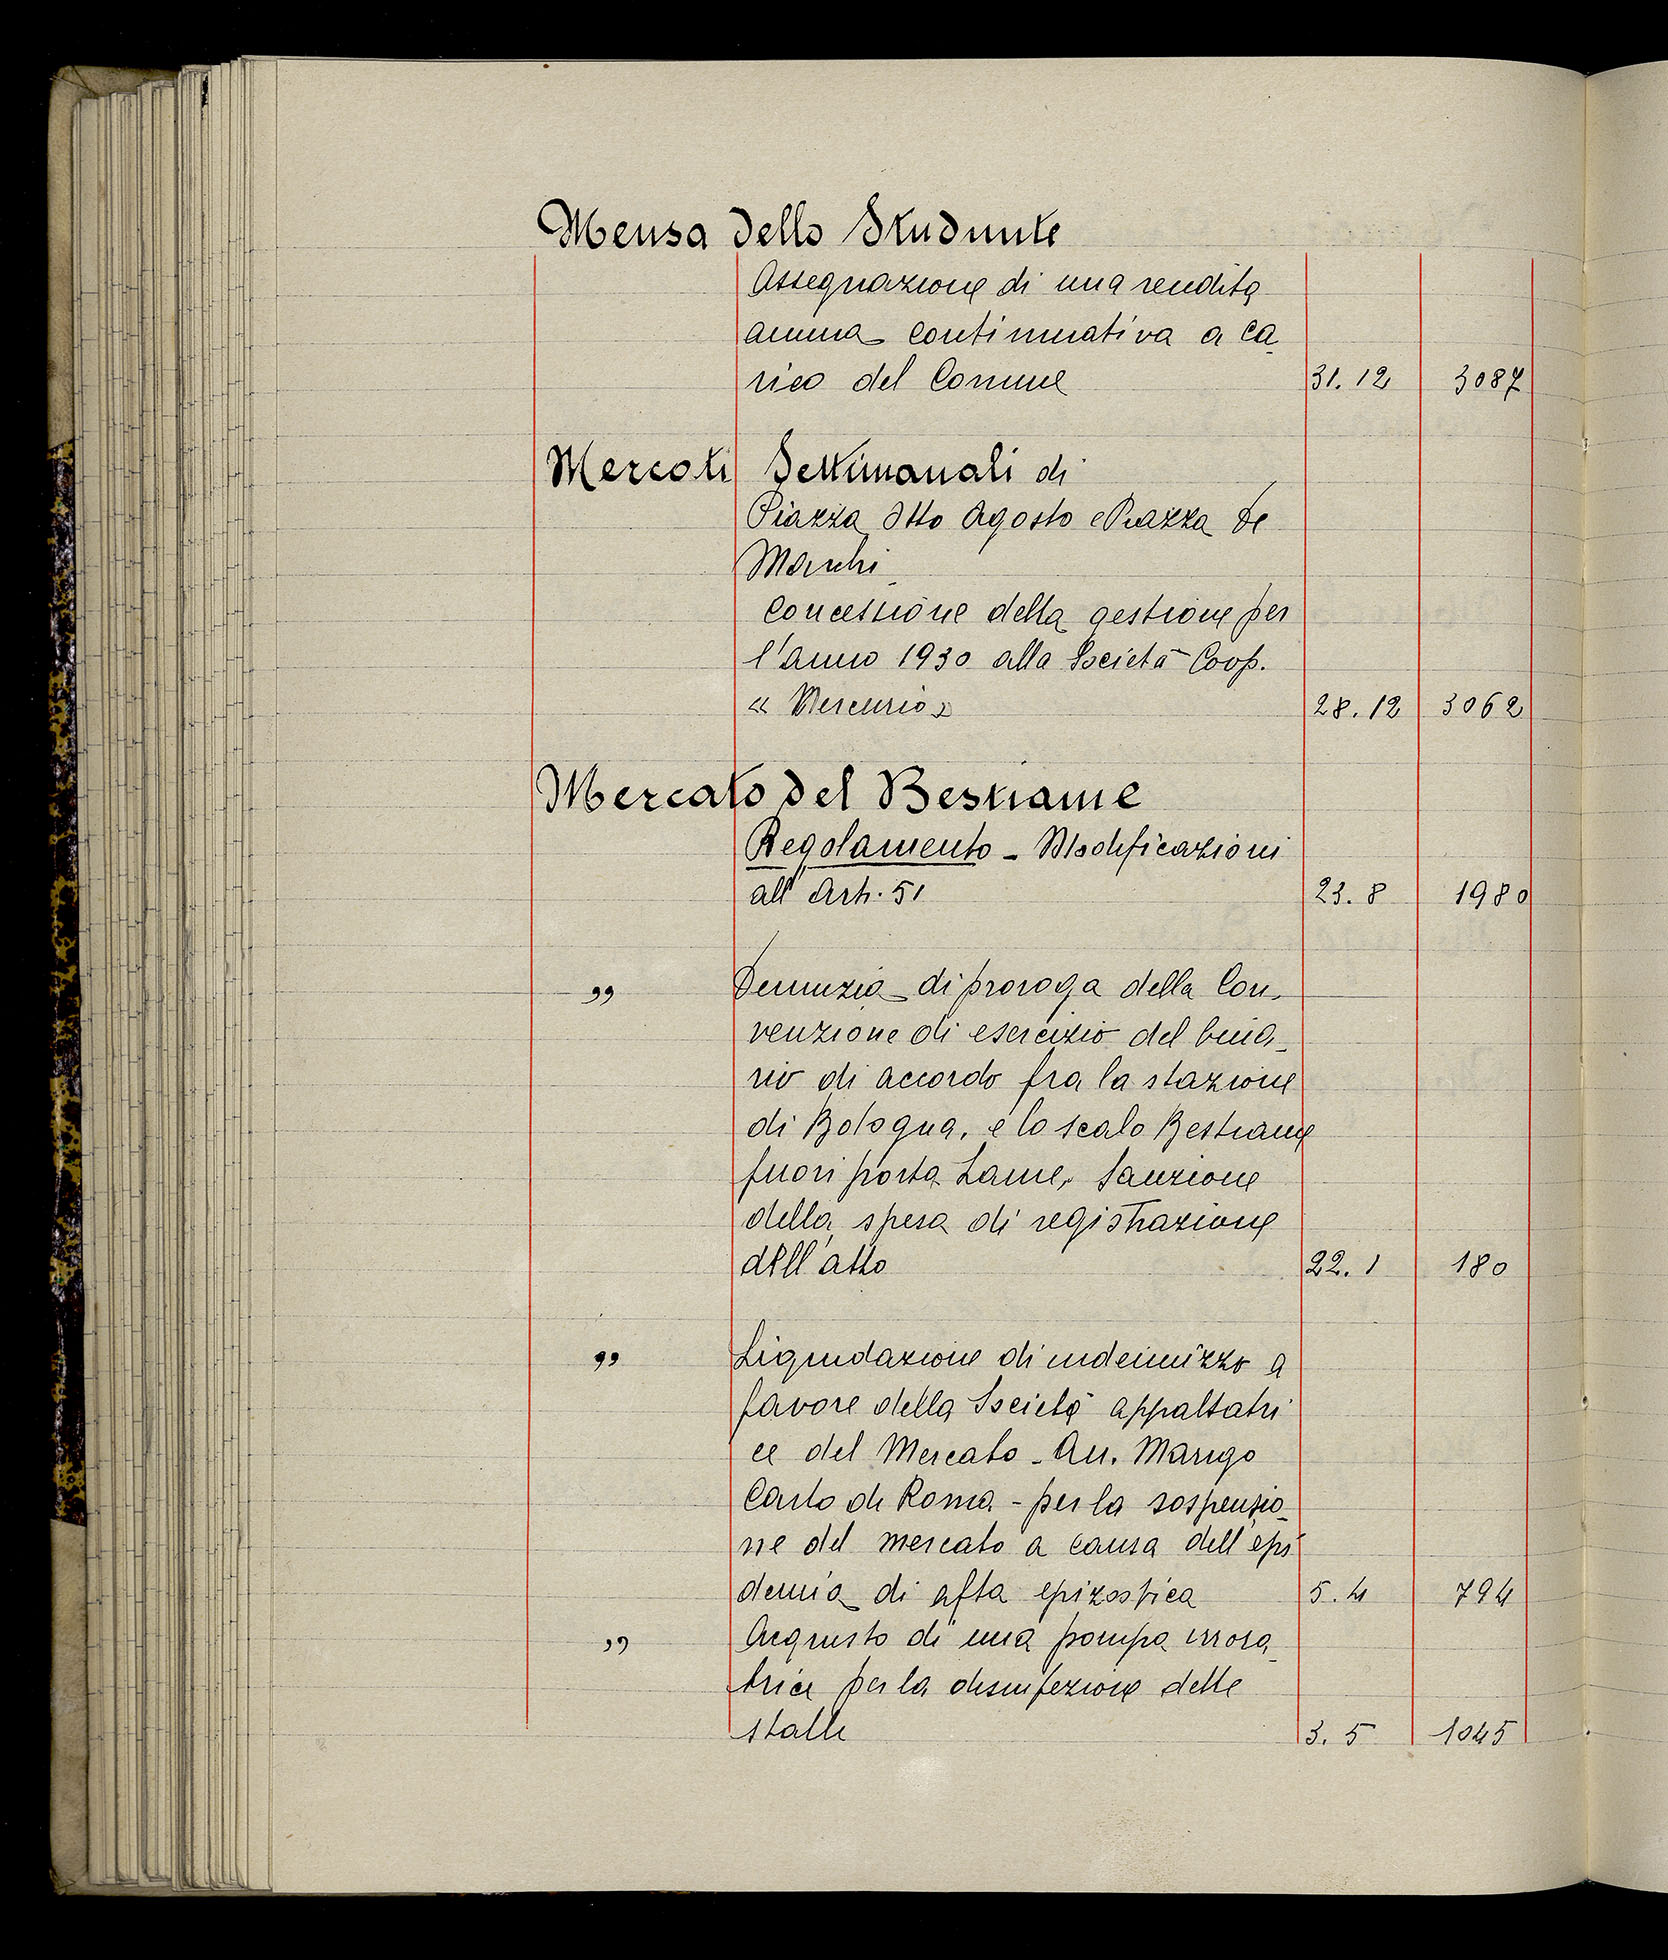 Mensa dello Studente
Assegnazione di una rendita
annua continuativa a ca-
rico del Comune 31.12 3087
Mercati Settimanali di
Piazza Otto Agosto e Piazza De
Marchi
Concessione della gestione per
l'anno 1930 alla Società Coop.
« Mercurio » 28.12 3062
Mercato del Bestiame
Regolamento - Modificazioni
all'Art. 51 23.8 1980
" Denunzia di proroga della Con-
venzione di esercizio del bina-
rio di accordo fra la stazione
di Bologna, e lo scalo Bestiame
fuori porta Lame, Sanzione
della spesa di registrazione
dell'atto 22.1 180
" Liquidazione di indennizzo a
favore della Società appaltatri
ce del Mercato - An. Marigo
Carlo di Roma - per la sospensio-
ne del mercato a causa dell'epi
demia di afta epizootica 5.4 794
" Acquisto di una pompa irrora-
trice per la disinfezione delle
stalle 3.5 1045